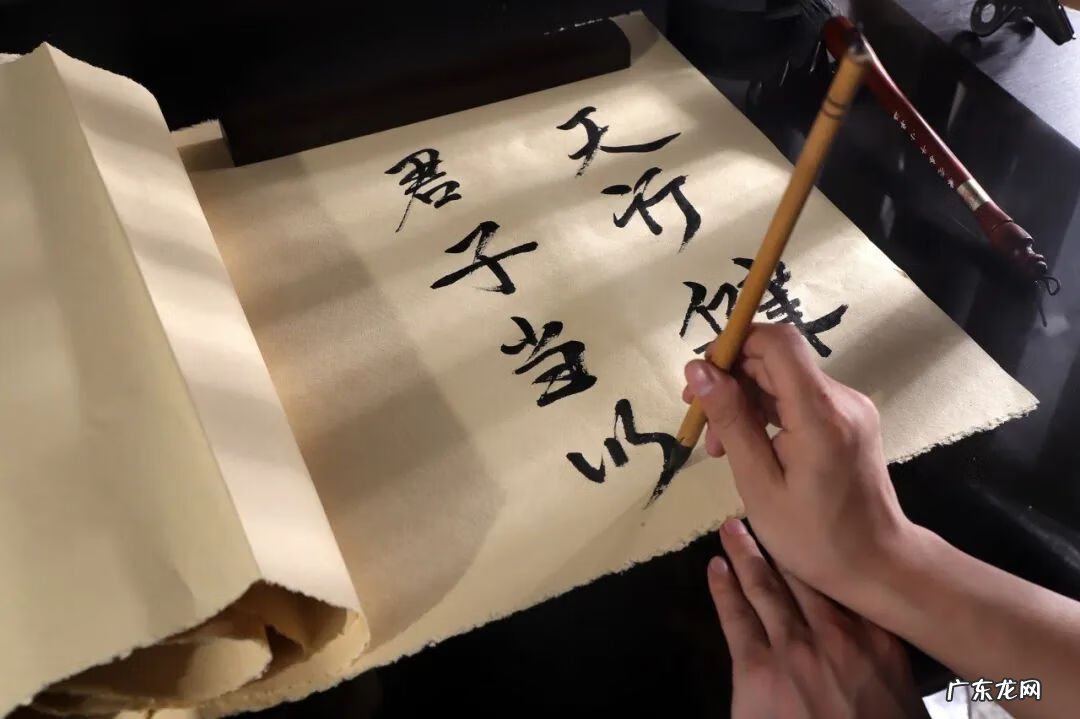 天行健
君子当以
广东龙网